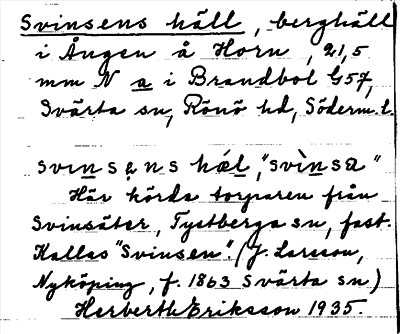 Svinsens häll, berghäll
i Ången å Horn, 21,5
mm N a i Brandbol G57,
Svärta sn, Rönö hd, Söderm.l.
svinsəns hæl, "svìnsa"
Här körde torparen från
Svinsäter, Tystberga sn, fast.
Kallas "Svinsen". (J. Larsson,
Nyköping, f. 1863 Svärta sn)
Herberth Eriksson 1935.